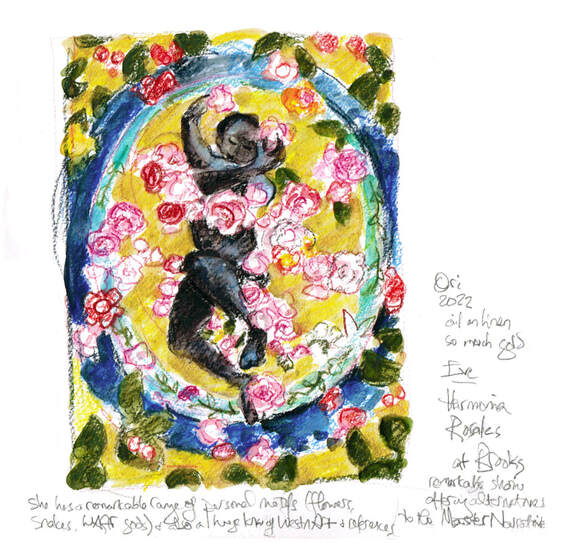 Ori
2022
oil on linen
so much gold
Eve
Harmonia
Rosales
at Brooks
remarkable show
offering alternatives
to the Master Narrative
She has a remarkable range of personal motifs (flowers,
snakes, gods) & also a huge knowledge Western Art & references